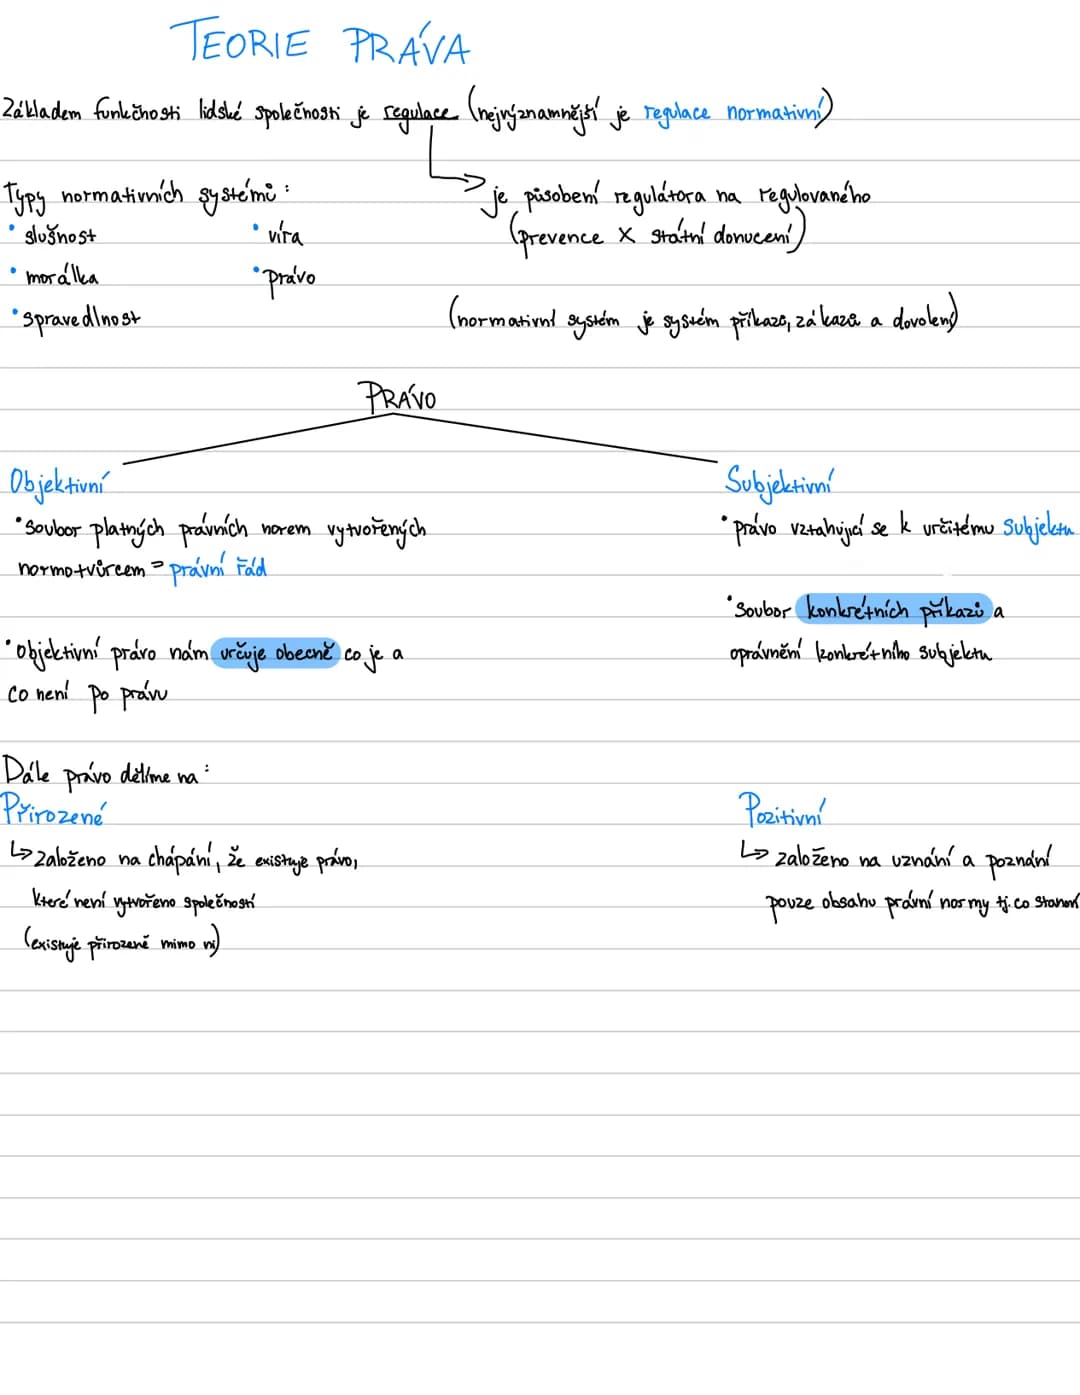 TEORIE PRÁVA
Základem funkčnosti lidské společnosti je regulace (nejvýznamnější je regulace normativní)
Typy normativních systémů:
je působení regulátora na regulovaného
• slušnost
• víra
(prevence X státní donucení)
• morálka
• právo
• spravedlnost
(normativní systém je systém příkazů, zákazů a dovolení)
PRÁVO
Objektivní
Subjektivní
• Soubor platných právních norem vytvořených
• právo vztahující se k určitému subjektu
normotvůrcem = právní řád
• Soubor konkrétních příkazů a
• Objektivní právo nám určuje obecně co je a
oprávnění konkrétního subjektu
co není po právu
Dále právo dělíme na:
Přirozené
Pozitivní
↳ založeno na chápání, že existuje právo,
↳ založeno na uznání a poznání
které není vytvořeno společností
pouze obsahu právní normy tj. co
(existuje přirozeně mimo ni)